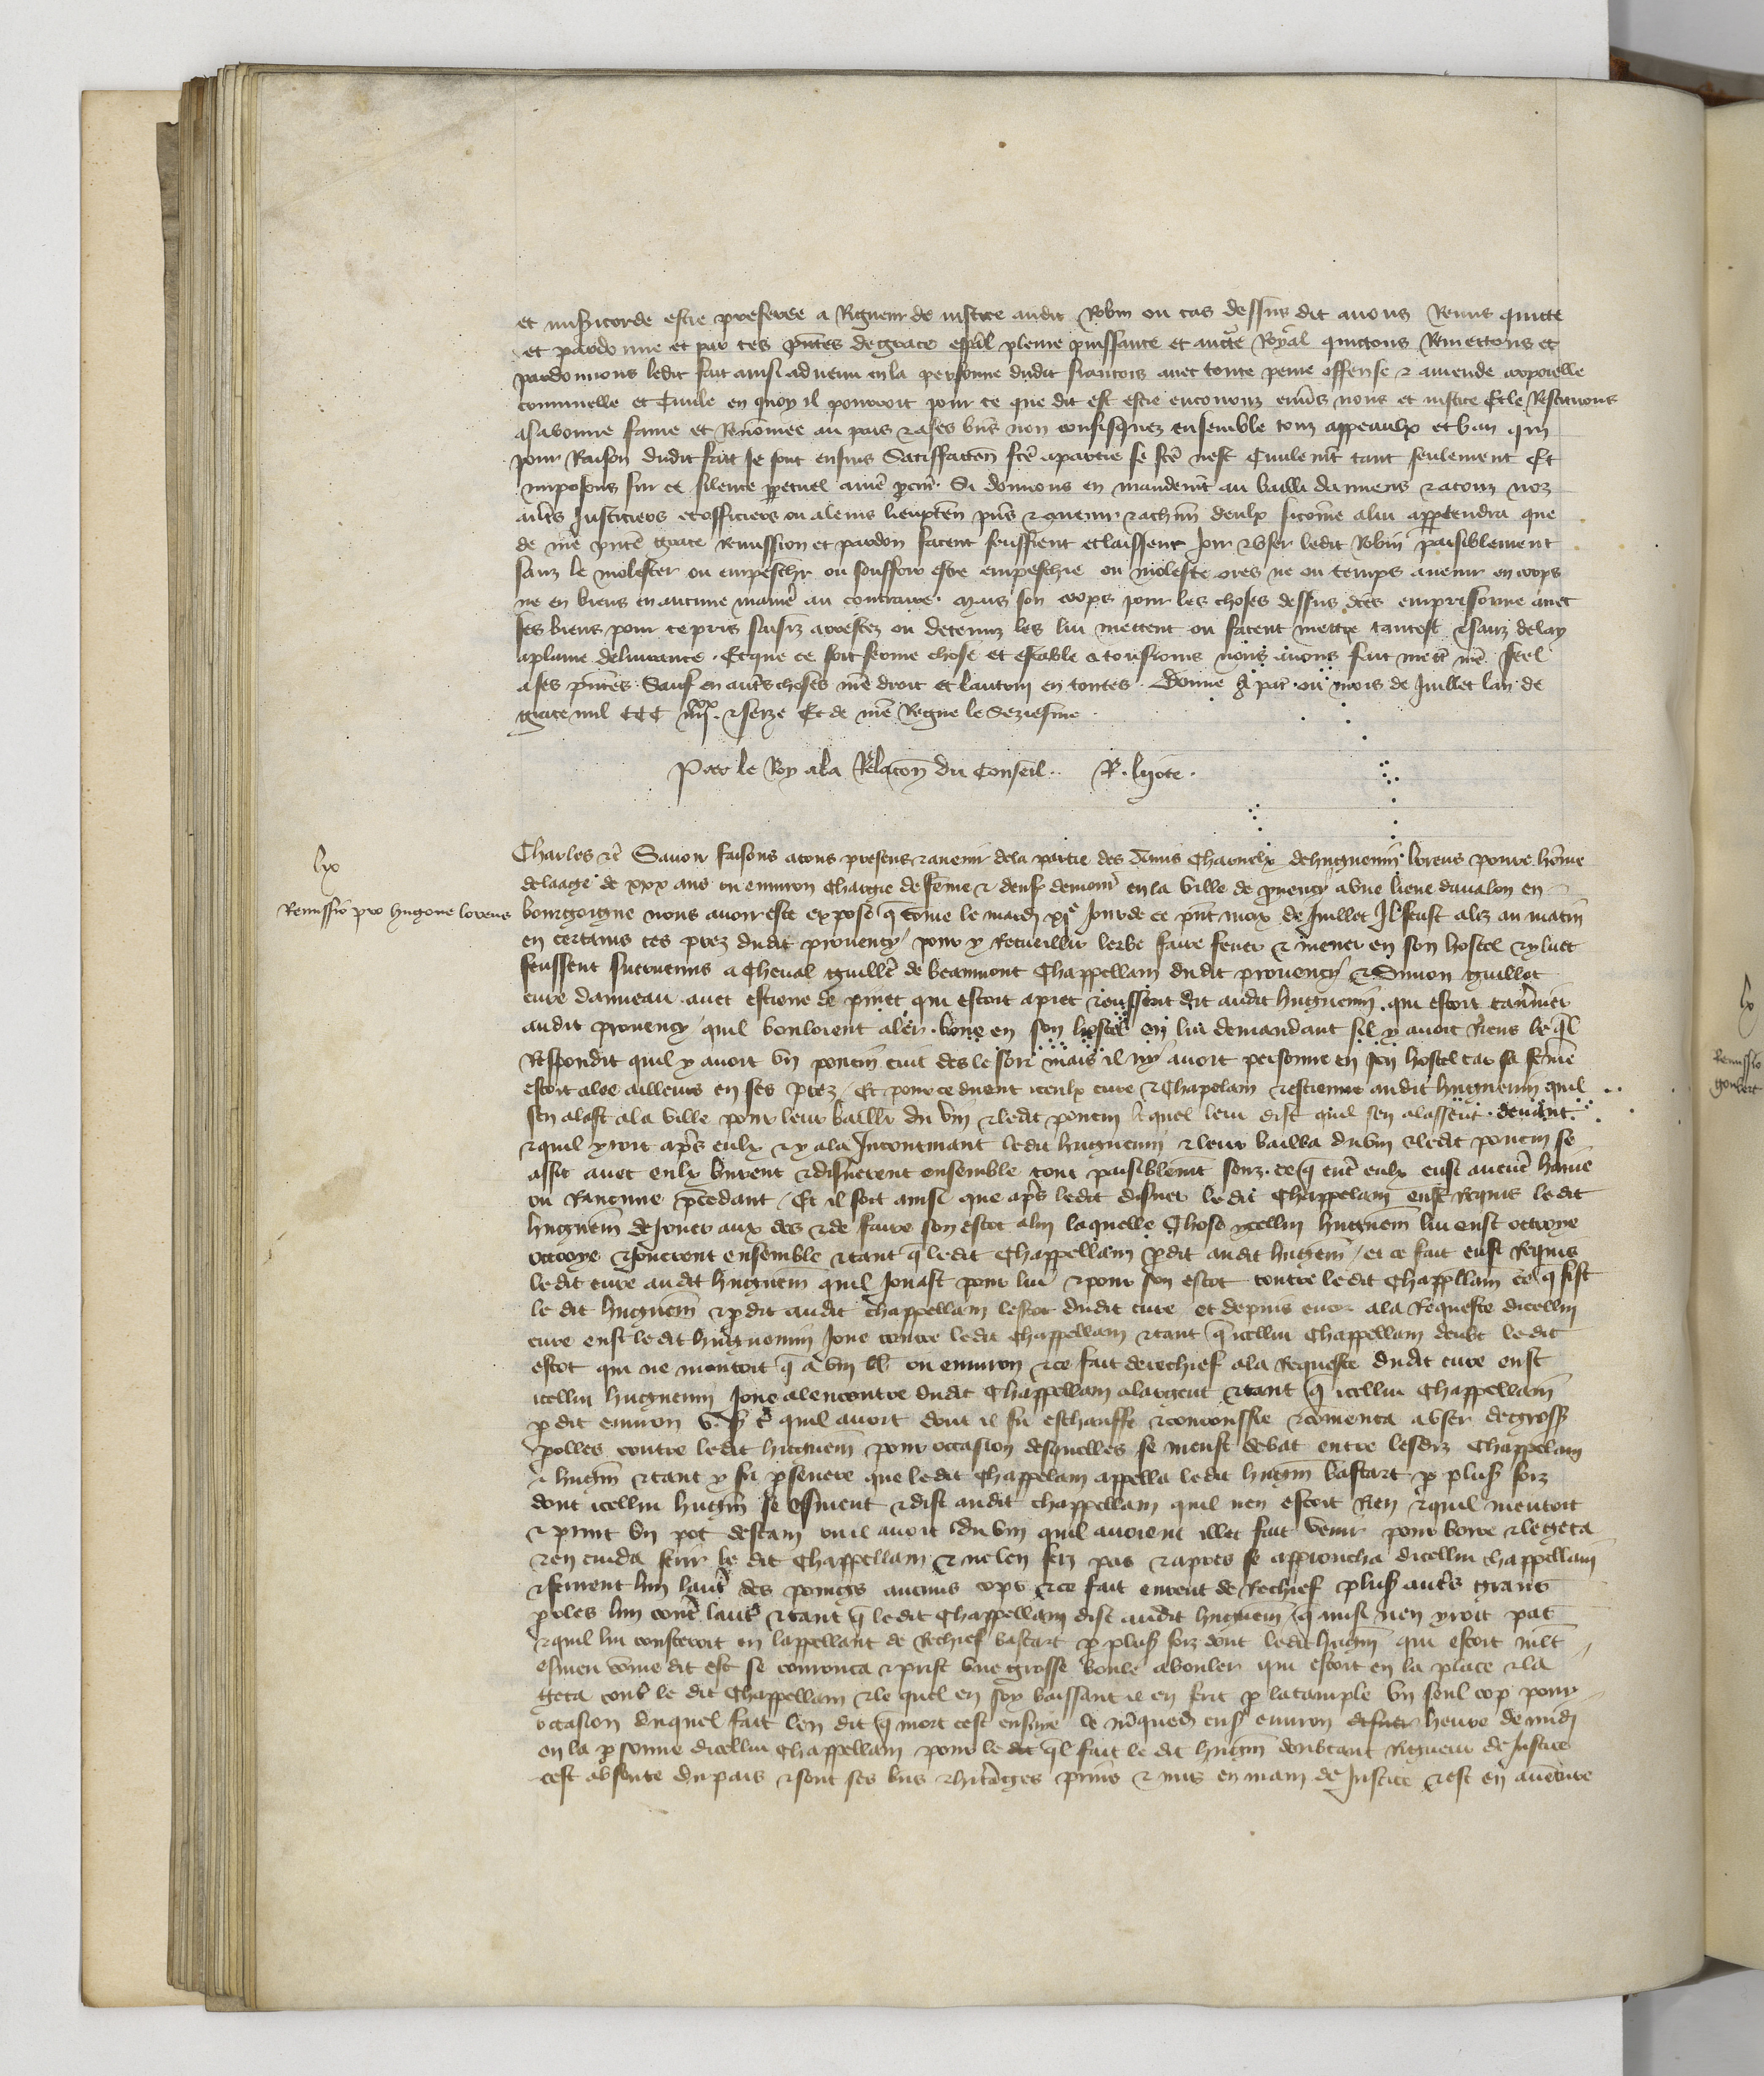 et misericorde estre preferee a Rigueur de justice audit Robin ou cas dessus dit avons Remis quicte
et pardonne et par ces pntes de grace espal pleine puissance et aucte Royal quictons Remettons et
pardonnons ledit fait ainsi advenu en la personne dudit francois avec toute peine offense & amende corporelle
criminelle et Civile en quoy il pourroit pour ce que dit est estre encouruz envs nous et justice Et le Restituons
a sa bonne fame et Renomee au pais & a ses bns non confisquez ensemble touz appeaulx et ban qui
pour Raison dudit fait se sont ensuis Satisfaccon fce a partie se fce nest Civilemt tant seulement Et
imposons sur ce silence ppetuel a nre pcur. Si donnons en mandemt au bailli damiens & a touz noz
autrs Justiciers et officiers ou a leurs lieuxten pns & avenir & a chun deulx sicome a lui appartendra que
de nre pnte grace Remission et pardon facent seuffrent et laissent Joir & user ledit Robin paisiblement
sanz le molester ou empeschr ou souffrir estre empeschie ou moleste ores ne ou temps avenir en corps
ne en biens en aucune manie au contraire. Mais son corps pour les choses dessus dces emprisonne avec
ses biens pour ce pris saisiz arrestez ou detenuz les lui mettent ou facent mettre tantost & sanz delay
a plaine delivrance. Et que ce soit ferme chose et estable a tousjours nous avons fait mect nre seel
a ses pntes Sauf en autrs choses nre droit et lautruy en toutes. Donne a par ou mois de Juillet lan de
grace mil CCC iiijxx & seize Et de nre Regne le Seziesme.
Par le Roy a la Relacon du Conseil.. R. lyote.
lx
Remissio pro hugone lorens
Charles &c Savoir faisons a tous presens & avenir de la partie des amis Charnelx de huguenin lorens povre home
de laage de xxx ans ou environ Chargie de feme & denfs demour en la ville de pvency a une lieue davalon en
bourgoigne nous avoir este expose q come le mardi xje Jour de ce pnt moys de Juillet Il feust alez au matin
en certains ces prez dudit provency pour y Recueillir lerbe faire fener & mener en son hostel & y luec
feussent survenus a Cheval guille de beaumont Chappellain dudit provency & Simon guillot
cure danneau avec estiene de pniet qui estoit a piet & eussent dit audit huguenin qui estoit tavnier
audit provency quil vouloient aler boire en son hostel en lui demandant sil y avoit Riens le ql
Respondit quil y avoit un poucin cuit des le soir mais il ny avoit personne en son hostel car sa feme
estoit alee ailleurs en ses prez / Et pour ce dirent iceulx cure & Chapelain & estienne audit huguenin quil
sen alast a la ville pour leur baillr du vin & ledit poucin lequel leur dist quil sen alassent devant
& quil yroit aprs eulx & y ala Incontinant ledit huguenin & leur bailla du vin & ledit poucin se
assit avec eulx burent & disnerent ensemble tout paisiblemt sanz ce q entr eulx eust aucue haine
ou Rancune pcedant / Et il soit ainsi que aprs ledit disner ledit Chappelain eust Requis ledit
huguenin de Jouer aux dez & de faire son escot a lui laquelle Chose ycellui huguenin lui eust octroye
octroye & Jouerent ensemble & tant q ledit Chappellain pdit audit hugnin / et ce fait eust Requis
ledit cure audit huguenin quil Jouast pour lui & pour son escot contre ledit Chappellain ce q fist
le dit huguenin & pdit audit Chappellain lescot dudit cure et depuis encor a la Requeste dicellui
cure eust ledit huguenin Joue contre ledit Chappellain & tant q icellui Chappellain deubt ledit
escot qui ne montoit q a viij bl. ou environ & ce fait derechief a la Requeste dudit cure eust
icellui huguenin Joue a lencontre dudit Chappellain a largent & tant q icellui Chappellain
pdit environ v. s. t. quil avoit dont il fu eschauffe & courroussie & comenca a user de grosses
polles contre ledit huguenin pour occasion desquelles se meust debat entre lesdiz Chappelain
& hugnin & tant y fu psevere que ledit Chappelain appella ledit hugnin bastart p plus foiz
dont icellui hugnin se esmeut & dist audit chappellain quil nen estoit Rien & quil mentoit
& print un pot destain ou il avoit du vin quil avoient illec fait venir pour boire & le geta
& en cuida ferir le dit Chappellain & ne len feri pas & apres se approucha dicellui chappellain
& ferirent lun lautr des poings aucuns cops & ce fait eurent de Rechief plus autrs grans
poles lun contr lautr & tant q ledit Chappellain dist audit huguenin q ainsi nen yroit pas
& quil lui cousteroit en lappellant de Rechief bastart p plus foiz dont ledit hugnin qui estoit mlt
esmeu come dit est se courouca & prist une grosse boule a bouler qui estoit en la place & la
geta contr le dit Chappellain & le quel en soy baissant il en feri p la temple un seul cop pour
occasion duquel fait len dit q mort cest ensuye le mcquedi enss environ heure de midi
en la psonne dicellui Chappellain pour le ql fait le dit hugnin doubtant Rigueur de justice
cest absente du pais & sont ses bns & hitages prins & mis en main de Justice & est en aventure
lx
Remissio